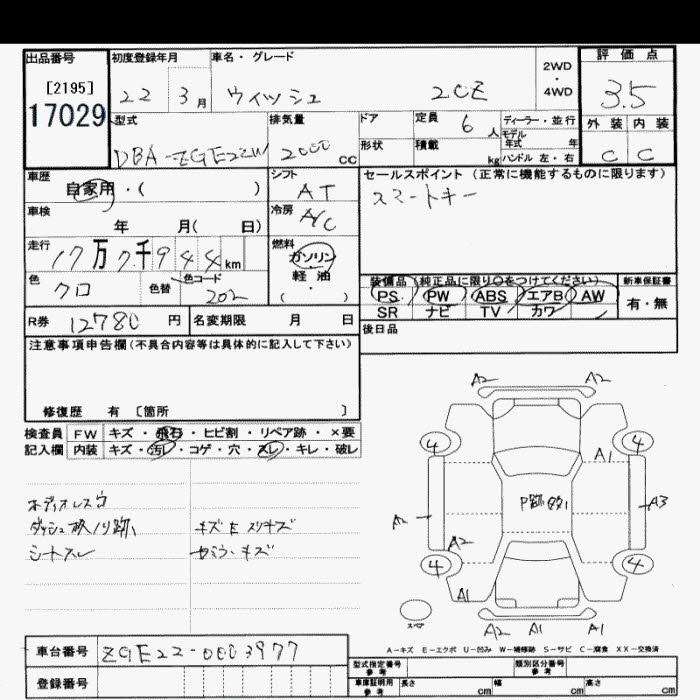 出品番号 初度登録年月 車名・グレード 2WD・4WD 評価点
[2195]
17029
22 3月 ウィッシュ 20E 3.5
型式 排気量 ドア 定員 6人 ディーラー・並行 外装 内装
モデル年式 年
DBA-ZGE22W 2000cc 形状 積載 kg ハンドル 左・右 C C
車歴 シフト セールスポイント(正常に機能するものに限ります)
自家用・( ) AT スマートキー
車検 冷房
年 月( 日) A/C
走行 燃料
17万7千944km ガソリン
軽油
( ・ )
色 色替 色コード 装備品(純正品に限り○をつけてください) 新車保証書
クロ 202 PS PW ABS エアB AW 有・無
SR ナビ TV カワ
R券 12780円 名変期限 月 日 後日品
注意事項申告欄(不具合内容等は具体的に記入して下さい)
修復歴 有 〔箇所 〕
検査員 FW キズ・飛石・ヒビ割・リペア跡・×要
記入欄 内装 キズ・汚レ・コゲ・穴・スレ・キレ・破レ
A2 A2
4 4
A1
P跡 A3
A2
A2
4 4
A1
スペア
A2 A1 A1
オーディオレス
ダッシュ ノリ跡
シートスレ
キズ E スリキズ
キズ
A-キズ E-エクボ U-凹み W-補修跡 S-サビ C-腐食 XX-交換済
車台番号 ZGE22-0003977
登録番号
型式指定番号 参考 類別区分番号 参考
車庫証明用 参考 長さ cm 幅 cm 高さ cm